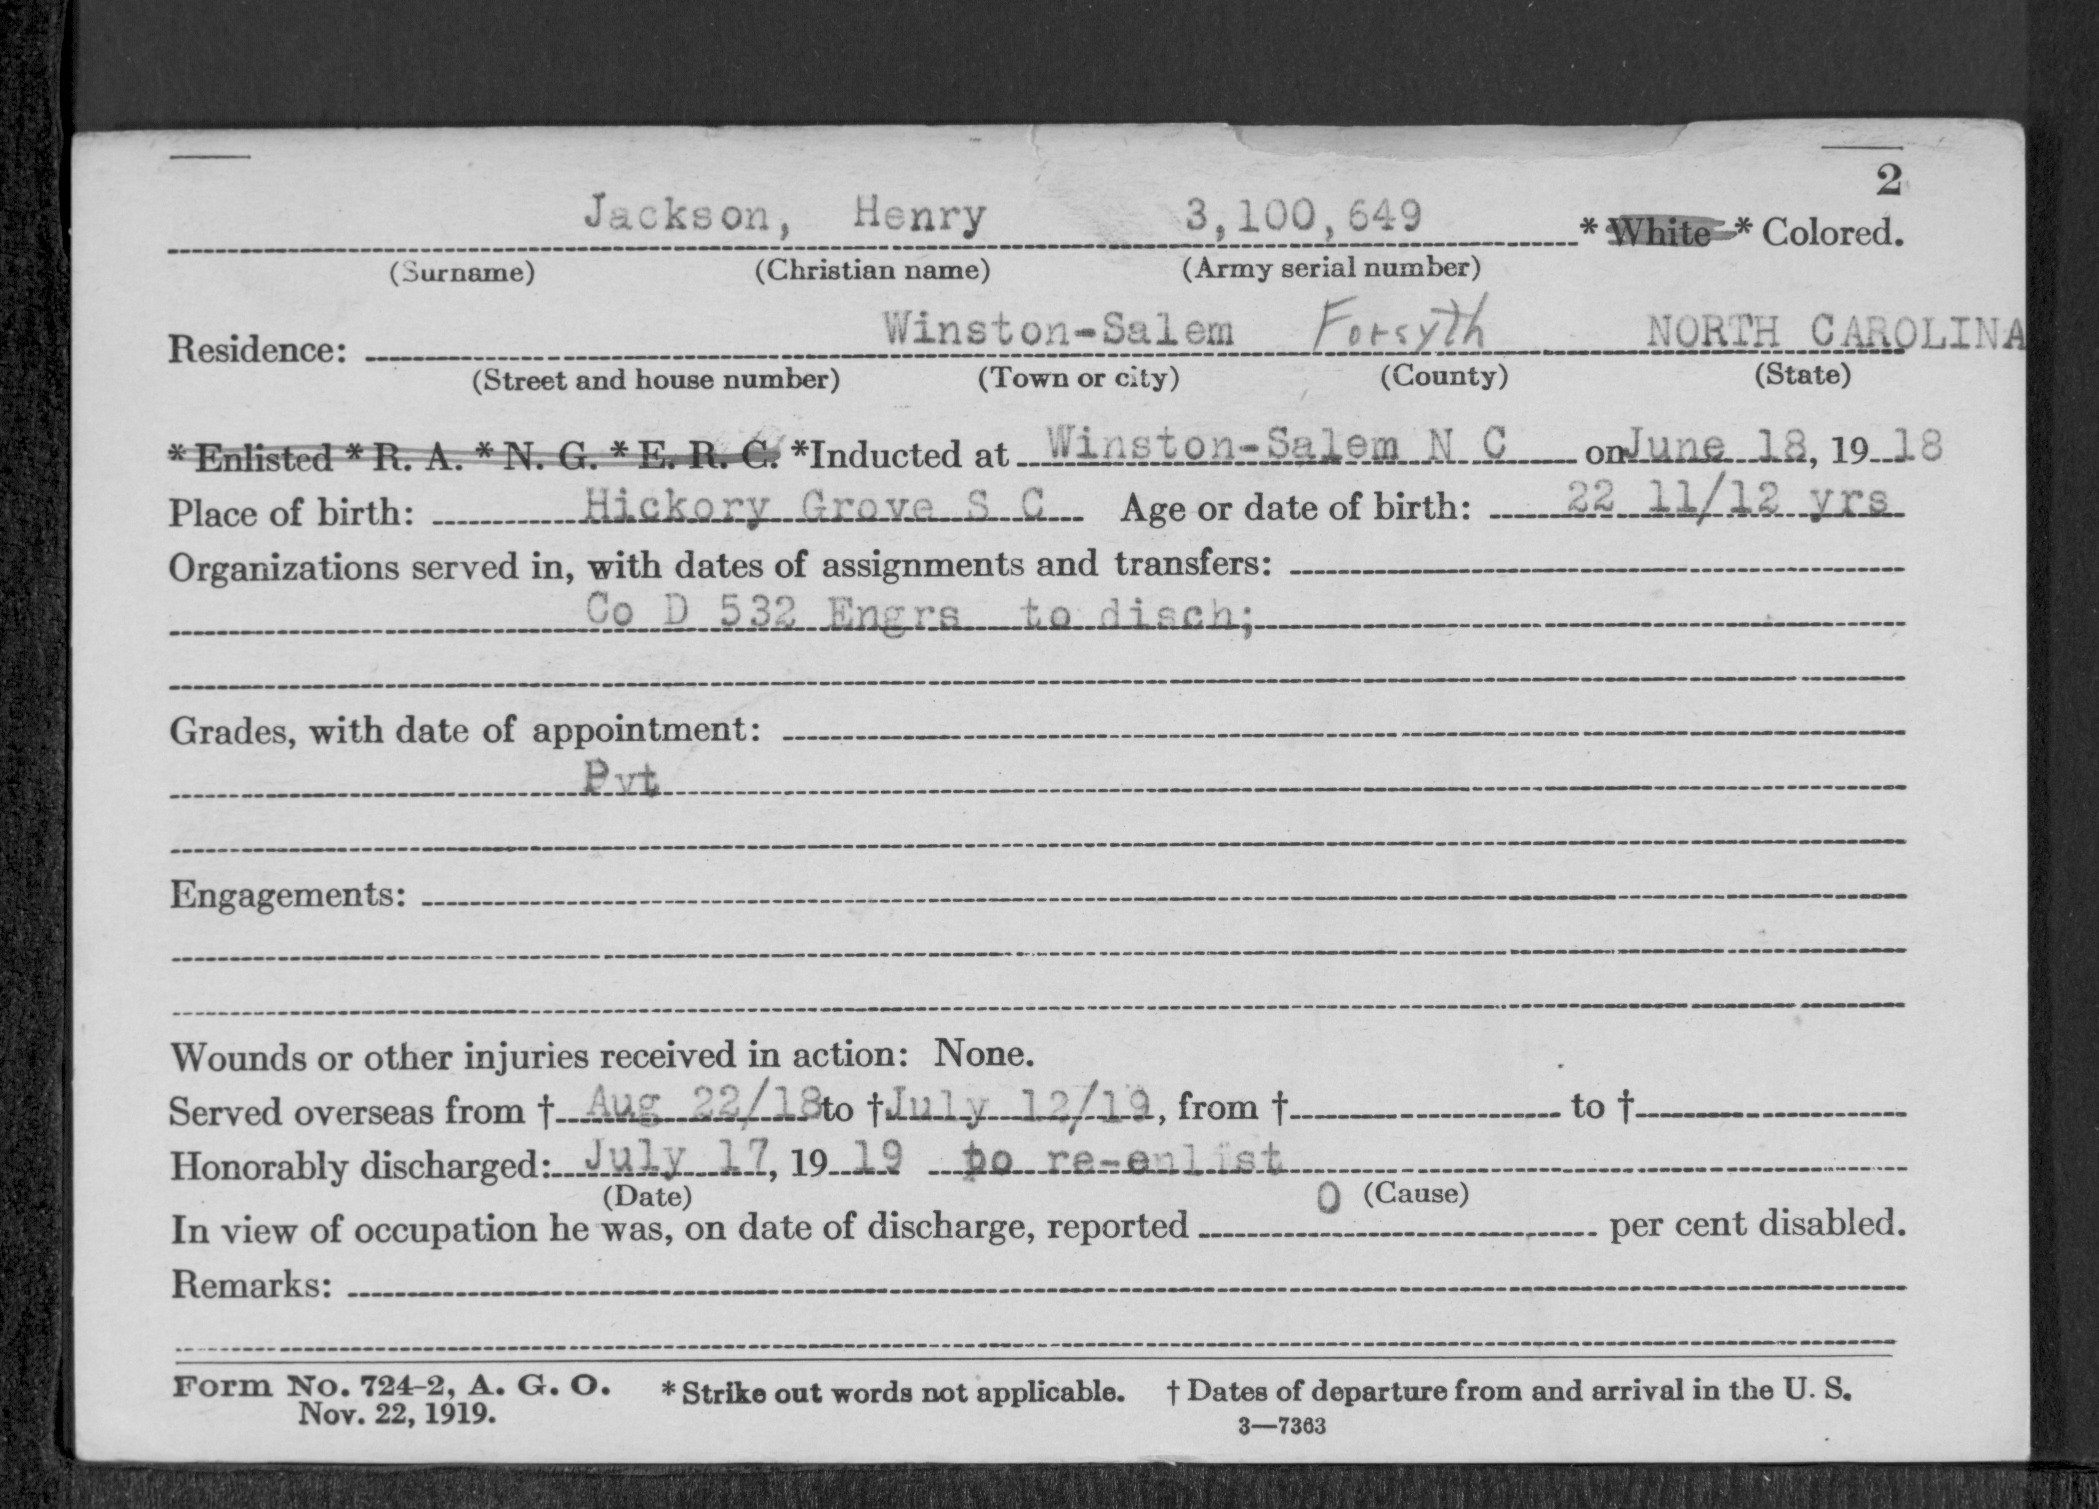 2
Jackson, Henry 3,100,649 * White * Colored.
(Surname) (Christian name) (Army serial number)
Residence: Winston-Salem Forsyth NORTH CAROLINA
(Street and house number) (Town or city) (County) (State)
* Enlisted * R. A. * N. G. * E. R. C. *Inducted at Winston-Salem N C on June 18, 19 18
Place of birth: Hickory Grove S C Age or date of birth: 22 11/12 yrs
Organizations served in, with dates of assignments and transfers:
Co D 532 Engrs to disch;
Grades, with date of appointment:
Pvt
Engagements:
Wounds or other injuries received in action: None.
Served overseas from † Aug 22/18 to † July 12/19, from † to †
Honorably discharged: July 17, 19 19 to re-enlist
(Date) (Cause)
In view of occupation he was, on date of discharge, reported 0 per cent disabled.
Remarks:
Form No. 724-2, A. G. O. * Strike out words not applicable. † Dates of departure from and arrival in the U. S.
Nov. 22, 1919. 3—7363